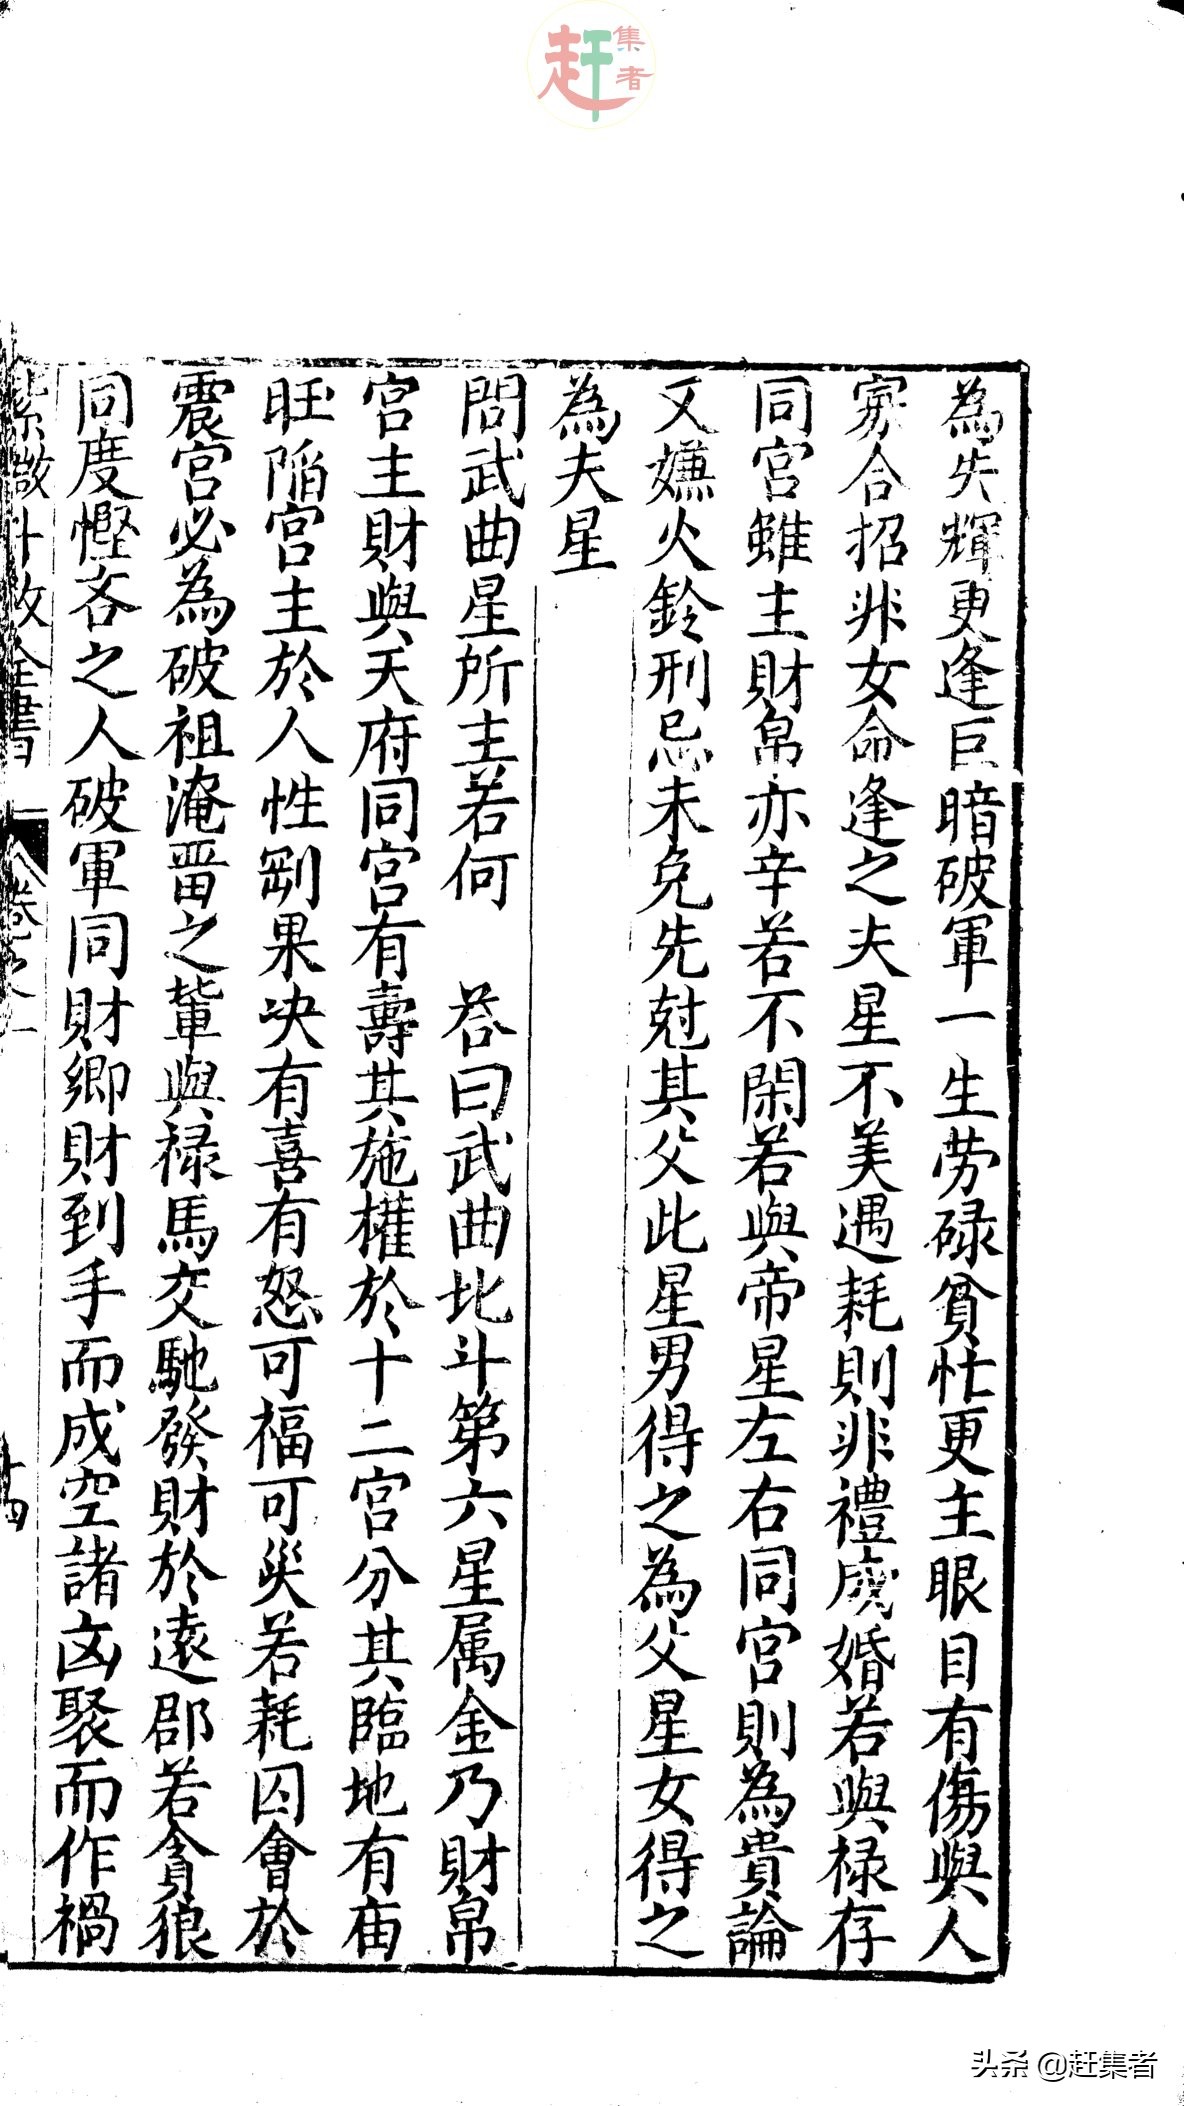 赶集者
為失輝更逢巨暗破軍一生劳碌貧忙更主眼目有傷與人
寡合招非女命逢之夫星不美遇耗則非禮成婚若與禄存
同宮雖主財帛亦辛若不閑若與帝星左右同宮則為貴論
又嫌火鈴刑忌未免先尅其父此星男得之為父星女得之
為夫星
問武曲星所主若何 荅曰武曲北斗第六星属金乃財帛
宮主財與天府同宮有壽其施權於十二宮分其臨地有庙
旺陷宮主於人性剛果决有喜有怒可福可災若耗囚會於
震宮必為破祖淹畱之輩與禄馬交馳發財於遠郡若貪狼
同度慳吝之人破軍同財鄉財到手而成空諸凶聚而作禍
紫微斗数全書 卷之一 十四
头条 @赶集者